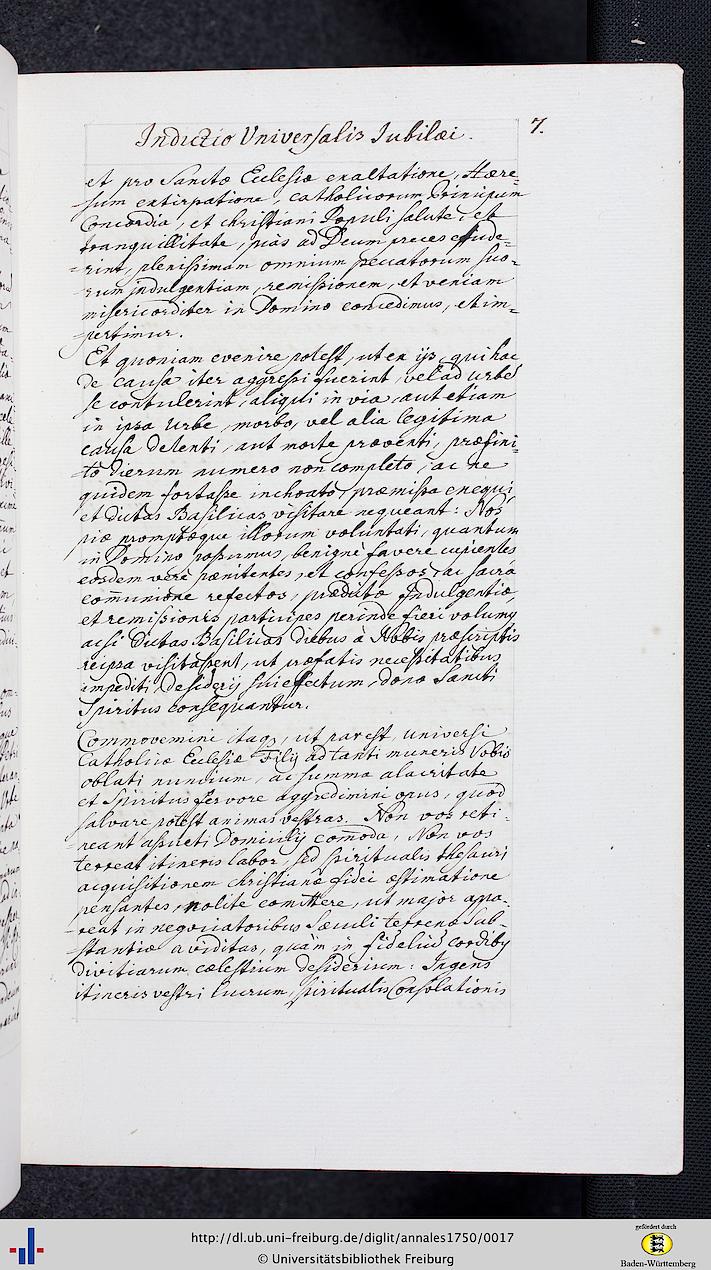 Indictio Universalis Iubilæi.
7.
et pro Sanctæ Ecclesiæ exaltatione, Hære-
sum extirpatione, catholicorum Principum
Concordia, et christiani Populi salute, et
tranquillitate, pias ad Deum preces effude-
rint, plenissimam omnium peccatorum suo-
rum indulgentiam, remissionem, et veniam
misericorditer in Domino concedimus, et im-
pertimur.
Et quoniam evenire potest, ut ex ijs, qui hac
de causa iter aggressi fuerint, vel ad urbē
se contulerint, aliqui in via, aut etiam
in ipsa Urbe, morbo, vel alia legitima
causa detenti, aut morte præventi, præfini-
to dierum numero non completo, ac ne
quidem fortasse inchoato, præmissa exequi,
et dictas Basilicas visitare nequeant: Nos
piæ promptæque illorum voluntati, quantum
in Domino possumus, benigne favere cupientes
eosdem verè pænitentes, et confessos, ac sacrâ
com̄unione refectos, prædictæ Indulgentiæ,
et remissionis participes perinde fieri volumꝰ
ac si dictas Basilicas diebus a Nobis præscriptis
reipsa visitassent, ut præfatis necessitatibus
impediti, desiderij sui effectum, dono Sancti
Spiritus consequantur.
Commovemini itaqꝫ, ut par est, universi
Catholicæ Ecclesiæ Filij ad tanti muneris Vobis
oblati nuncium, ac summa alacritate
et Spiritus fervore aggredimini opus, quod
salvare potest animas vestras. Non vos reti-
neant assueti Domicilij com̄oda, Non vos
terreat itineris labor, sed spiritualis thesauri
acquisitionem christianæ fidei æstimatione
pensantes, nolite com̄ittere, ut major appa-
reat in negotiatoribus sæculi terrenæ sub-
stantiæ aviditas, quàm in fideliū cordibꝰ
divitiarum cælestium desiderium: Ingens
itineris vestri lucrum, spiritualis Consolationis
http://dl.ub.uni-freiburg.de/diglit/annales1750/0017
© Universitätsbibliothek Freiburg
gefördert durch
Baden-Württemberg